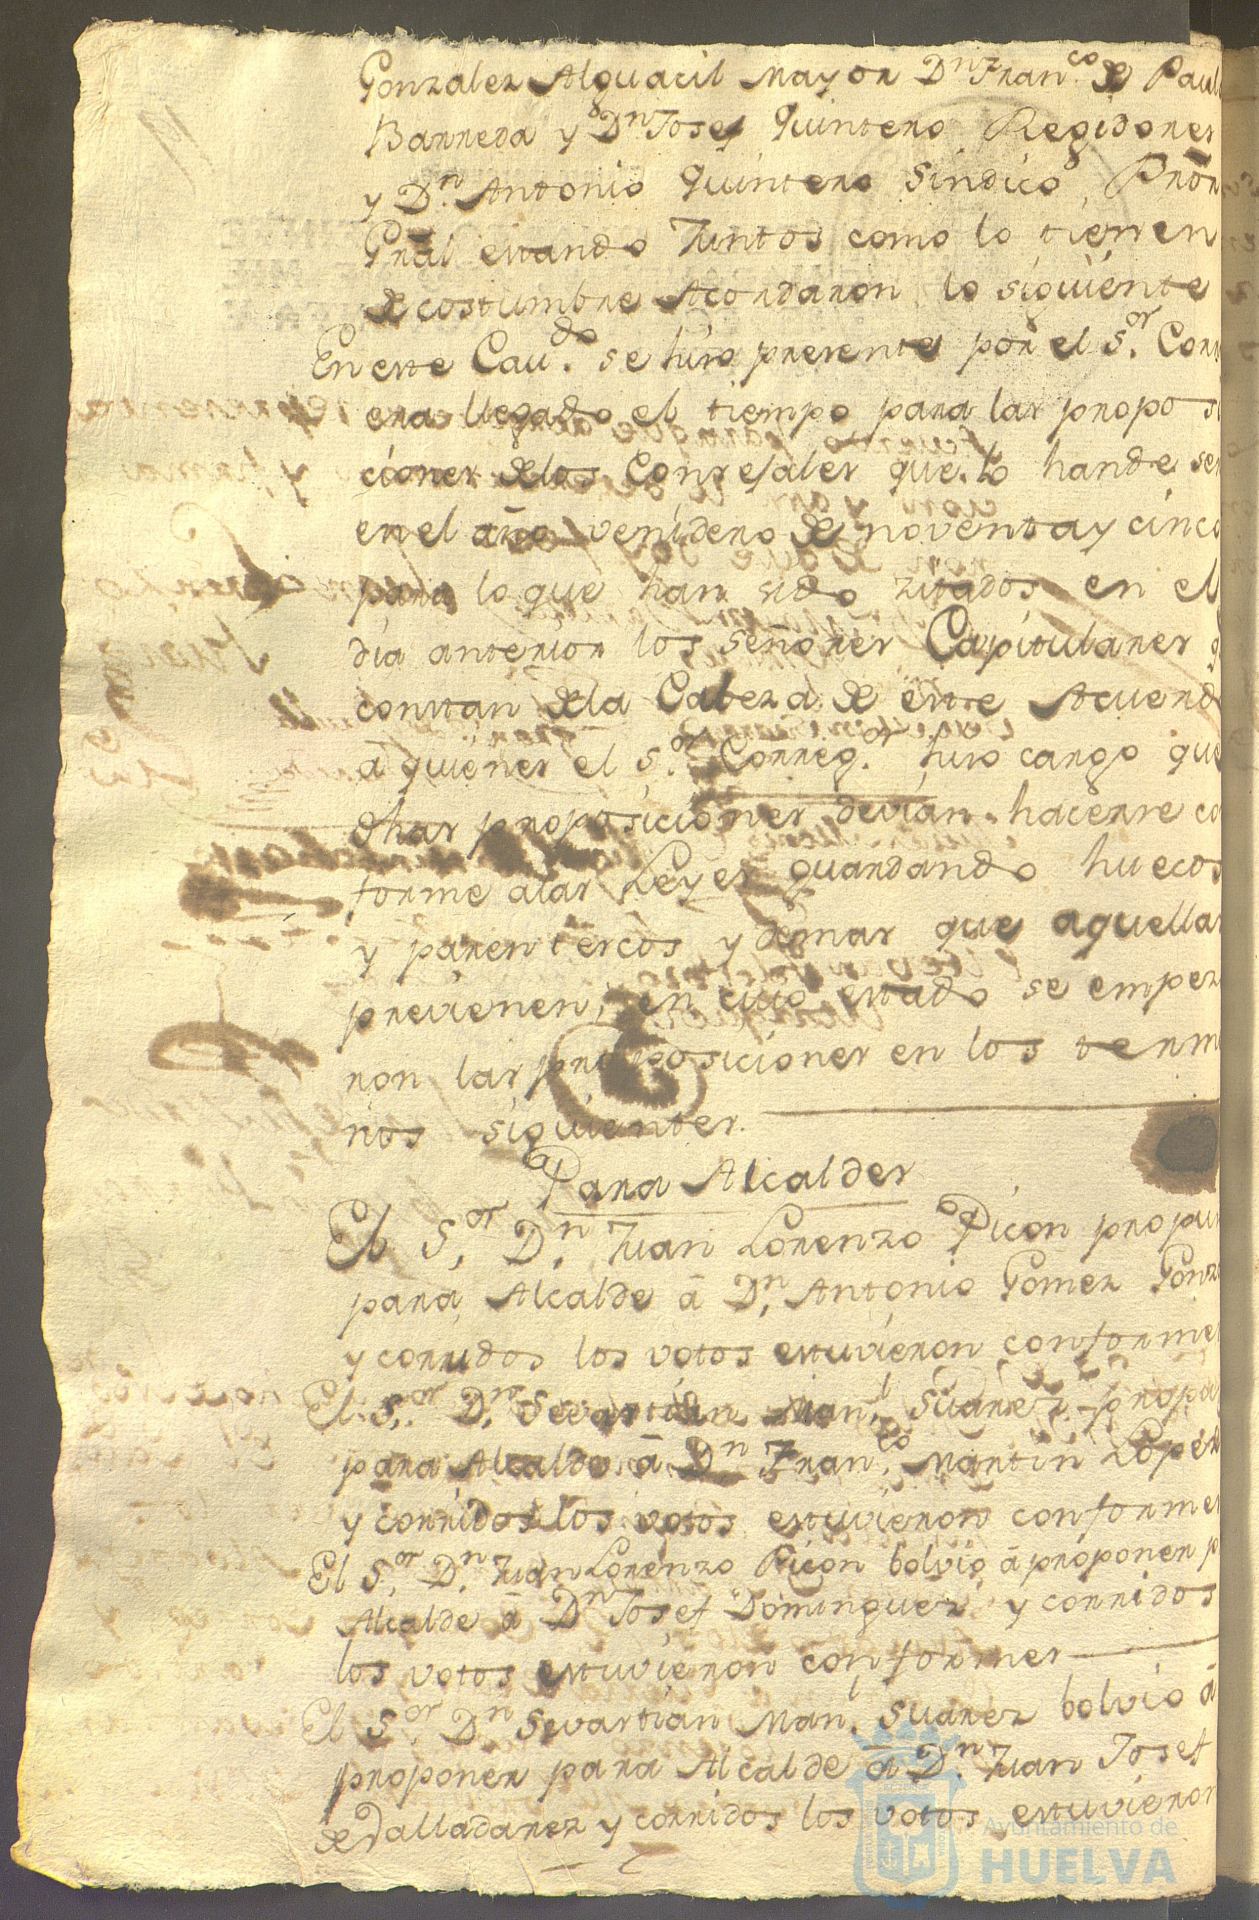 Gonzalez Alguacil mayor Dn Franco de Paul
Barreda y Dn Josef Quintero Regidores
y Dn Antonio Quintero Sindico Pror
Gral estando Juntos como lo tienen
de costumbre Acordaron lo siguiente
En este Cavdo se hizo presente por el Sor Corr
era llegado el tiempo para las proposi
ciones de los Consejales que lo han de ser
en el año venidero de noventa y cinco
para lo que han sido zitados en el
dia anterior los señores Capitulares q
constan de la Cabeza de este Acuerd
a quienes el Sor Corregor hizo cargo que
dhas proposiciones devian hacerse co
forme a las Leyes guardando huecos
y parentercos y demas que aquellas
previenen, en cuio estado se empez
ron las proposiciones en los termi
nos siguientes.
Para Alcaldes
El Sor Dn Juan Lorenzo Picon propu
para Alcalde á Dn Antonio Gomez Gonz
y corridos los votos estuvieron conformes
El Sor Dn Sevastian Manl Suarez propu
para Alcalde á Dn Franco Martin Lopez
y corridos los votos estuvieron conformes
El Sor Dn Juan Lorenzo Picon bolvio á proponer p
Alcalde á Dn Josef Dominguez y corridos
los votos estuvieron conformes
El Sor Dn Sevastian Manl Suarez bolvio á
proponer para Alcalde á Dn Juan Josef
de Valladares y corridos los votos estuvieron
Ayuntamiento de
HUELVA